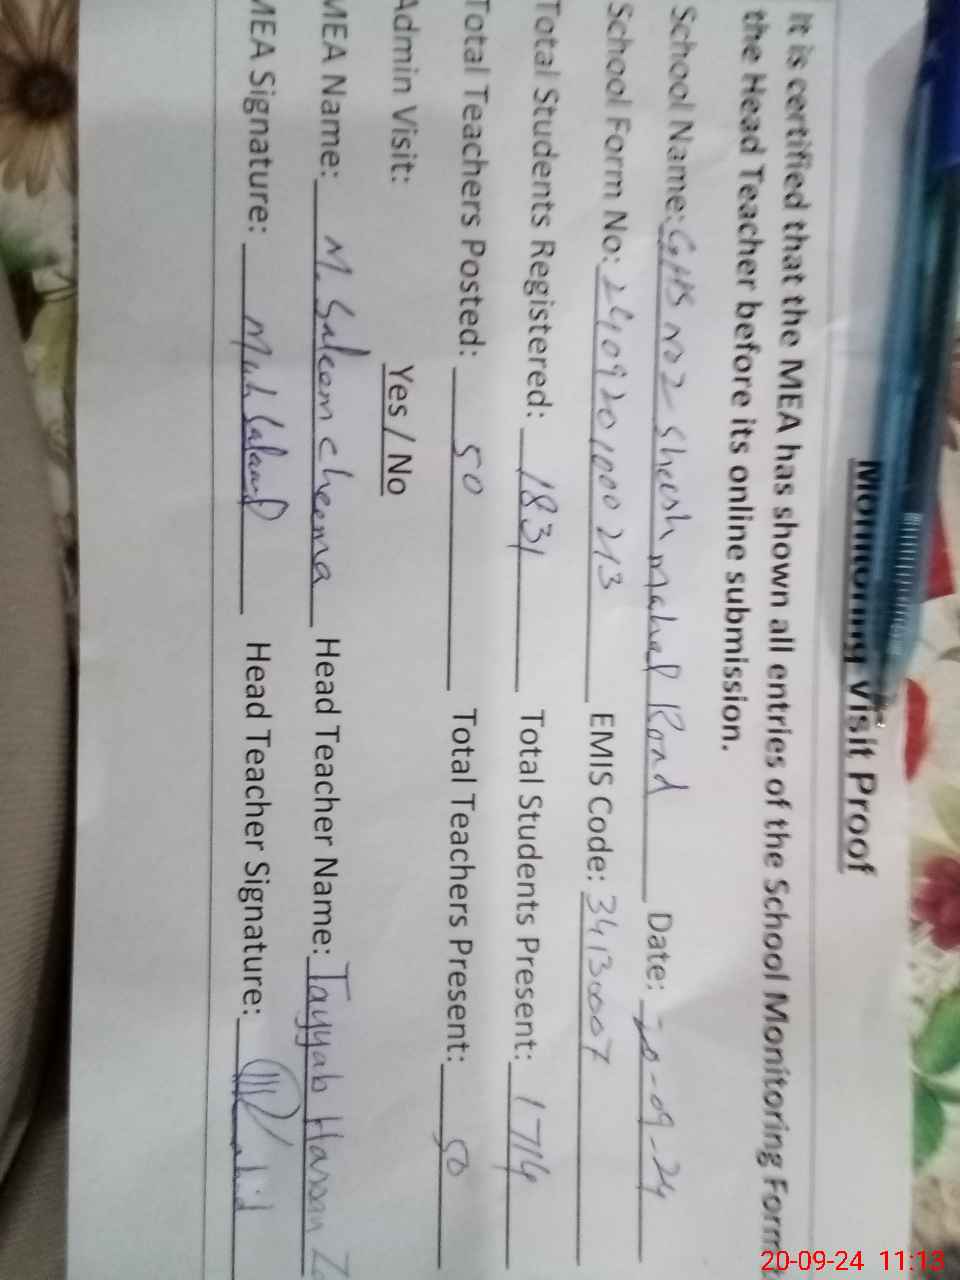 Monitoring Visit Proof
It is certified that the MEA has shown all entries of the School Monitoring Form
the Head Teacher before its online submission.
School Name: GHS No 2 Sheesh Mahal Road Date: 20-09-24
School Form No: 2409201000213 EMIS Code: 34130007
Total Students Registered: 1831 Total Students Present: 1714
Total Teachers Posted: 50 Total Teachers Present: 50
Admin Visit: Yes / No
MEA Name: M. Saleem cheema Head Teacher Name: Tayyab Hassan
MEA Signature: Head Teacher Signature:
20-09-24 11:13